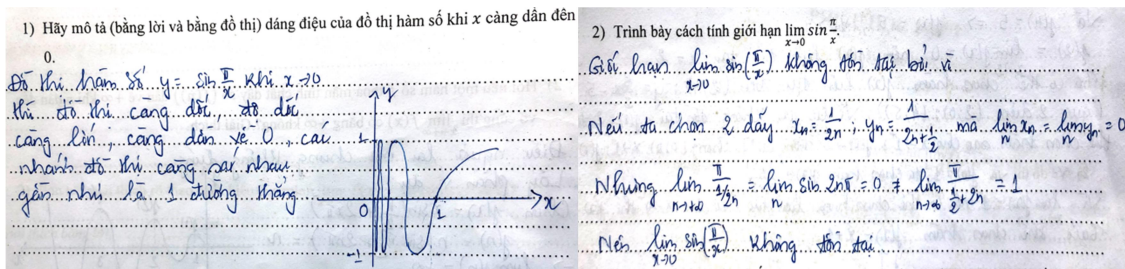 1) Hãy mô tả (bằng lời và bằng đồ thị) dáng điệu của đồ thị hàm số khi x càng dần đên
0.
Đồ thị hàm số y = sin π/x khi x→0
thì đồ thị càng dốc, độ dốc
càng lớn, càng dần về 0, các
nhánh đồ thị càng sát nhau,
gần như là 1 đường thẳng
y
1
0
1
x
-1
2) Trình bày cách tính giới hạn lim x→0 sin π/x.
Giới hạn lim x→0 sin(π/x) không tồn tại bởi vì
Nếu ta chọn 2 dãy xn = 1/2n ; yn = 1/(2n+1/2) mà lim n xn = lim n yn = 0
Nhưng lim n→+∞ π/(1/2n) = lim n sin 2nπ = 0 ≠ lim n→∞ π/(1/2+2n) = 1
Nên lim x→0 sin(π/x) không tồn tại